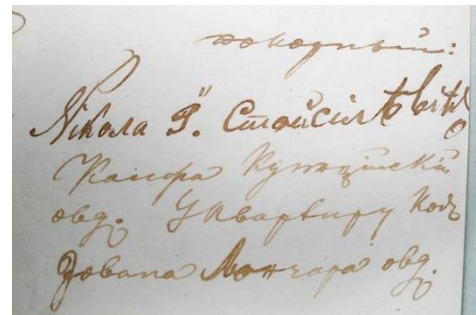 покорный:
Никола Ф. Стойсилѣвićъ
Калфа Кунџійскій
овд. У Квартиру Кодъ
Јована Лончара овд.